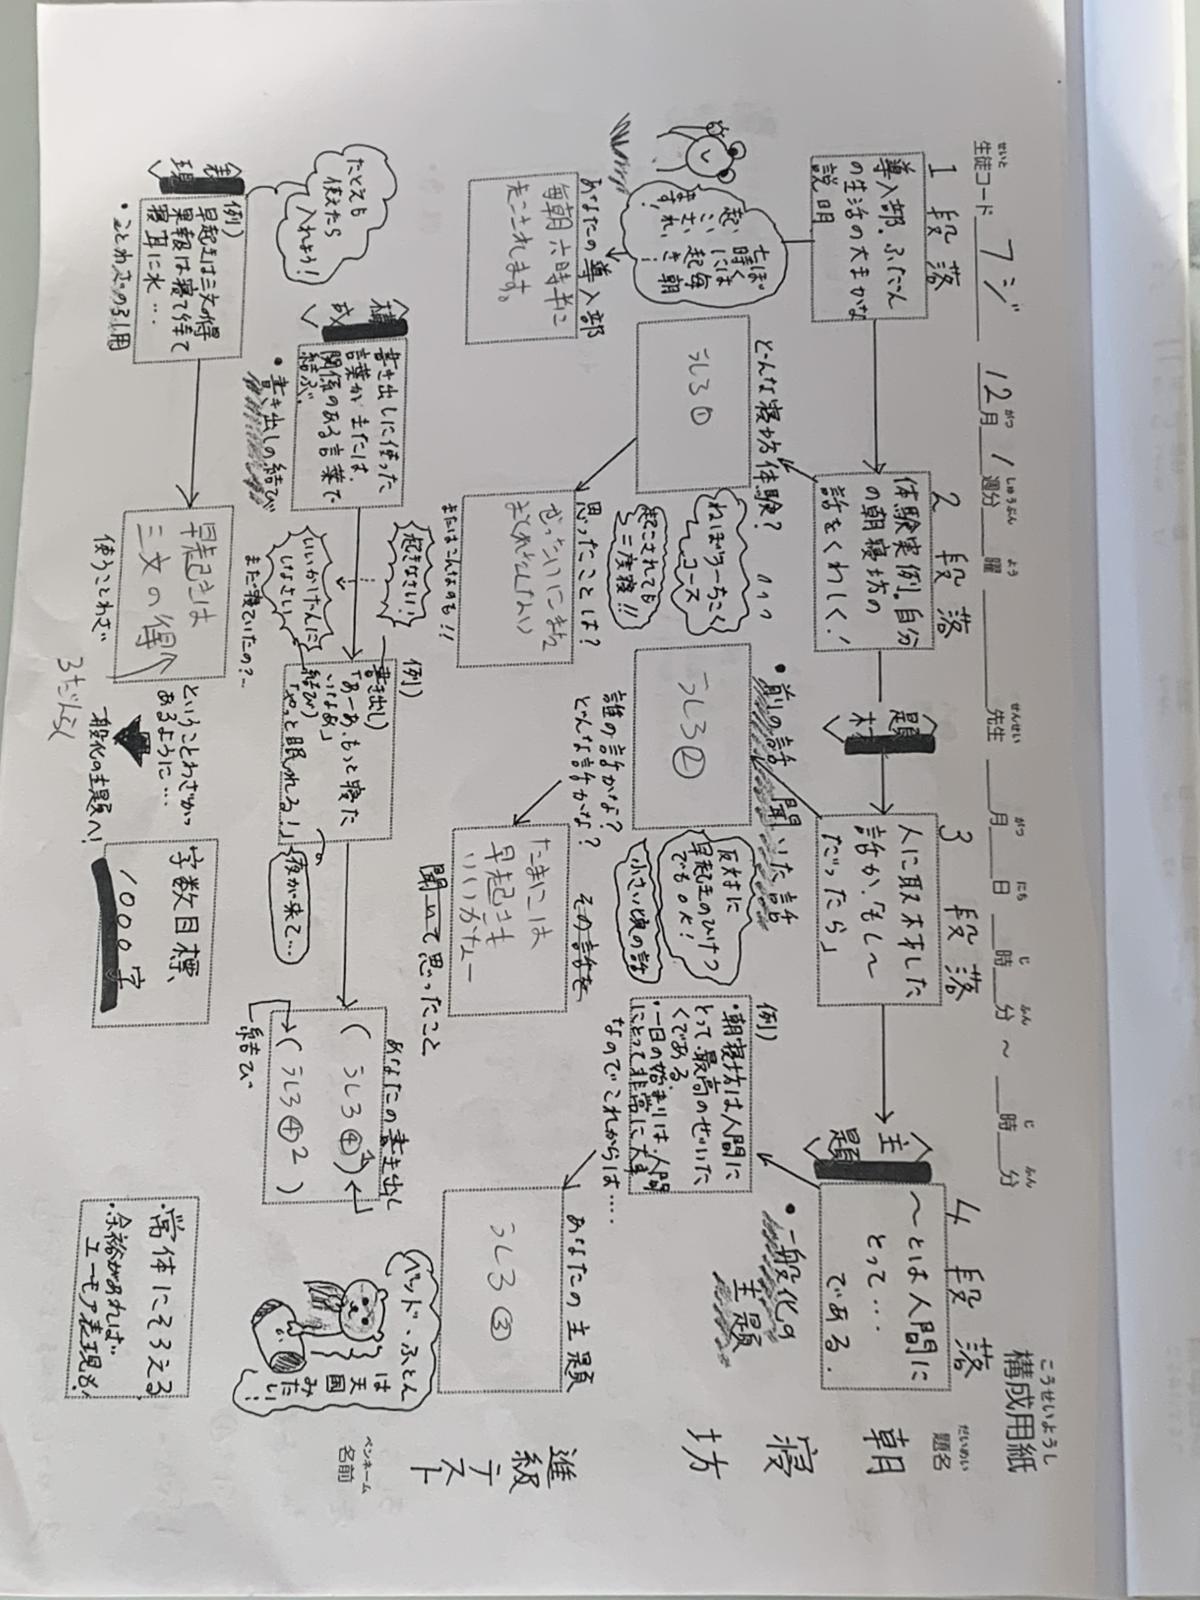 構成用紙
こうせいようし
題名
だいめい
朝寝坊
進級テスト
ペンネーム
名前
生徒コード フジ
せいと
12月1週分 曜 先生 月 日 時 分 ~ 時 分
がつ しゅうぶん よう せんせい がつ にち じ ふん じ ふん
1段落
導入部。ふだん
の生活の大まかな
説明
七時には
起きなさい!
あなたの導入部
毎朝六時半に
起こされます。
2段落
体験実例。自分
の朝寝坊の
話をくわしく!
どんな寝坊体験?
うしろ①
ねぼけうっちこく
コース
起こされても
二度寝!!
思ったことは?
またはこんなのも!!
〈題材〉
3段落
人に取材した
話か、もし~
だったら」
・前の話 聞いた話
うしろ②
反対に
早起きのひけつ
でもOK!
小さい頃の話
誰の話かな?
どんな話かな?
その話を
聞いて思ったこと
たまには
早起きも
いいかなー
〈主題〉
4段落
~とは人間に
とって…
である.
・一般化の
主題
例)
・朝寝坊は人間に
とって、最高のぜいた
くである
・一日の始まりは、人間
にとって非常に大事
なのでこれからは....
あなたの主題
うしろ③
ベッド、ふとん
は天国
みたい!
〈構成〉
書き出しに使った
言葉か または、
関係のある言葉で
結ぶ。
・書き出しの結び
起きなさい!
いいかげんに
しなさい
まだ寝ていたの?…
例)
書き出し)
「あーあ、もっと寝た
いなあ」
結び)
「やっと眠れる!」
夜が来て…
あなたの書き出し
(うしろ④1)
(うしろ④2)
結び
たとえも
使えたら
入れよう!
〈表現〉
例)
早起きは三文の得
果報は寝て待て
寝耳に水…
・ことわざの引用
早起きは
三文の得
使うことわざ
ということわざが
あるように…
一般化の主題へ!
3だんらく
字数目標、
1000字
・常体にそろえる
・余裕があれば
ユーモア表現も!